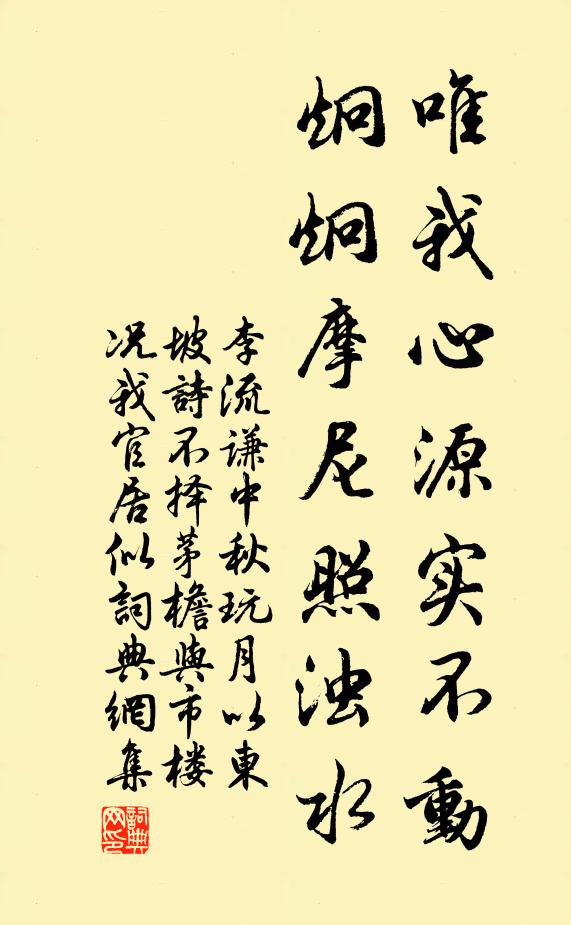 唯我心源实不動
炯炯摩尼照浊水
李流谦中秋玩月以東
坡詩不择茅檐與市楼
况我官居似詞典網集
詞典
网印